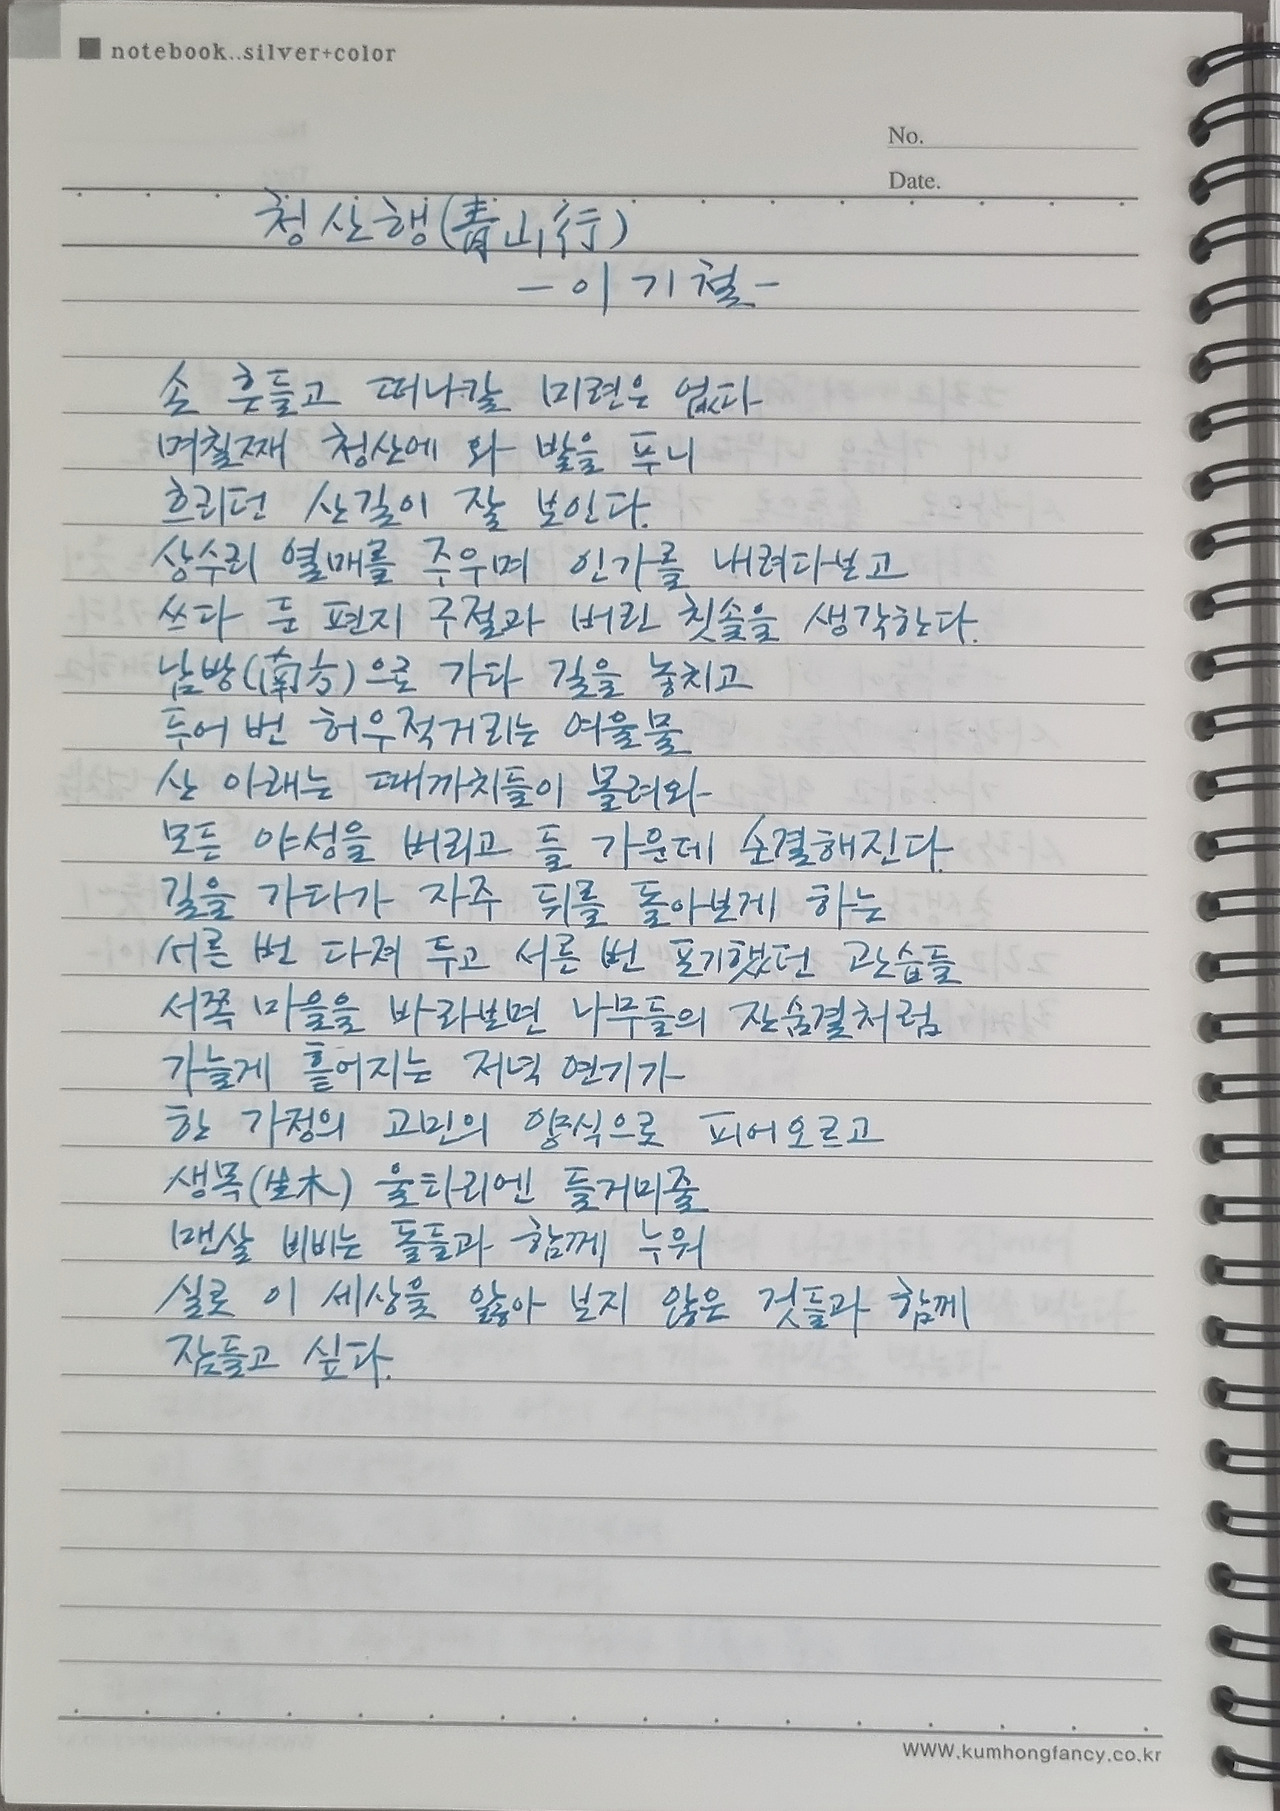 notebook..silver+color
No.
Date.
청산행(靑山行)
- 이기철 -
손 흔들고 떠나갈 미련은 없다
며칠째 청산에 와 발을 푸니
흐리던 산길이 잘 보인다.
상수리 열매를 주우며 인가를 내려다보고
쓰다 둔 편지 구절과 버린 칫솔을 생각한다.
남방(南方)으로 가다 길을 놓치고
두어 번 허우적거리는 여울물
산 아래는 때까치들이 몰려와
모든 야성을 버리고 들 가운데 순결해진다.
길을 가다가 자주 뒤를 돌아보게 하는
서른 번 다져 두고 서른 번 포기했던 관습들
서쪽 마을을 바라보면 나무들의 잔숨결처럼
가늘게 흩어지는 저녁 연기가
한 가정의 고민의 양식으로 피어오르고
생목(生木) 울타리엔 들거미줄
맨살 비비는 돌들과 함께 누워
실로 이 세상을 앓아 보지 않은 것들과 함께
잠들고 싶다.
WWW.kumhongfancy.co.kr